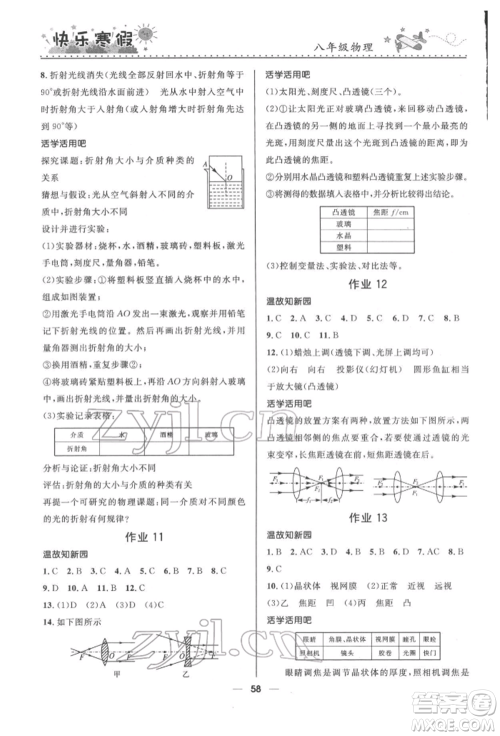 快乐寒假
八年级物理
8. 折射光线消失(光线全部反射回水中、折射角等于
90°或折射光线沿水面前进) 光从水中射入空气中
时折射角大于入射角,当入射角大到一定值时折射
角等于 90°
活学活用吧
探究课题:折射角大小与介质种类的
关系
猜想与假设:光从空气斜射入不同的
介质中,折射角大小不同
设计并进行实验:
(1)实验器材:烧杯,水,酒精,玻璃砖,塑料板,激光
手电筒,刻度尺、量角器,笔。
(2)实验步骤:①将塑料板竖直插入烧杯的水中,使
激光手电筒的光沿着塑料板上的 AO 方向射入水
中。
②以激光手电筒射入水中的光能在塑料板上用铅笔
记下折射光线的位置,取出塑料板量出折射角的大
小。
③换用酒精,重复②的步骤。
④将玻璃砖紧贴塑料板,再沿 AO 方向射入玻璃中,
量出折射角的大小。
(3)实验记录表格:
介质 水 酒精 玻璃
折射角
分析与论证:折射角大小与介质种类有关
评估:提出一个可研究的物理课题:不同颜色的
光的折射有何规律?
作业 11
温故知新园
1. C 2. A 3. B 4. C 5. D 6. D 7. A 8. C
9. D 10. A 11. B 12. C 13. (1)D (2)A
14. 如下图所示
F O
甲 乙
活学活用吧
(1)太阳光、刻度尺、凸透镜(三个)。
(2)①让太阳光正对玻璃凸透镜照射,在凸透镜的另
一侧前后移动光屏,直到光屏上出现一个最小最亮的
光斑,用刻度尺测量光斑到凸透镜的距离,即是凸
透镜的焦距。
②分别用水晶凸透镜和塑料凸透镜做实验。
③将测量的数据填入表格中,并比较得出结论。
凸透镜 焦距 f/cm
玻璃
水晶
塑料
(3)控制变量法、实验法、对比法等。
作业 12
温故知新园
1. C 2. D 3. A 4. C 5. B 6. B 7. D 8. B
9. C 10. C 11. B
12. (1)蜡烛上调(透镜下调、光屏上调均可)
(2)向右 向右 投影仪(幻灯机) 圆形鱼缸相当
于放大镜(凸透镜)
活学活用吧
凸透镜的放置方案有两种,放置方式、放置位置及
光路图如图所示。凸透镜能将较宽的平行光
束变窄,长焦距透镜应放在左侧。
作业 13
温故知新园
1. B 2. AC 3. A 4. C 5. D 6. B 7. A 8. D
9. C 10. (1)晶状体 视网膜 (2)凸 会聚
(3)乙 焦距 凹 (4)甲 凸
活学活用吧
眼睛 角膜、晶状体 视网膜 瞳孔 眼睑
照相机 镜头 胶卷 光圈 快门
眼睛调焦是调节晶状体的厚度,照相机调焦是
58
zyjl.cn
作业精灵